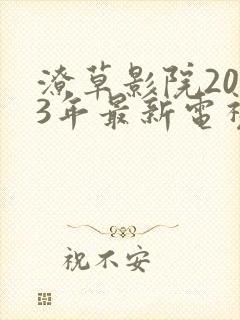 潦草影院20
3年最新電
祝不安